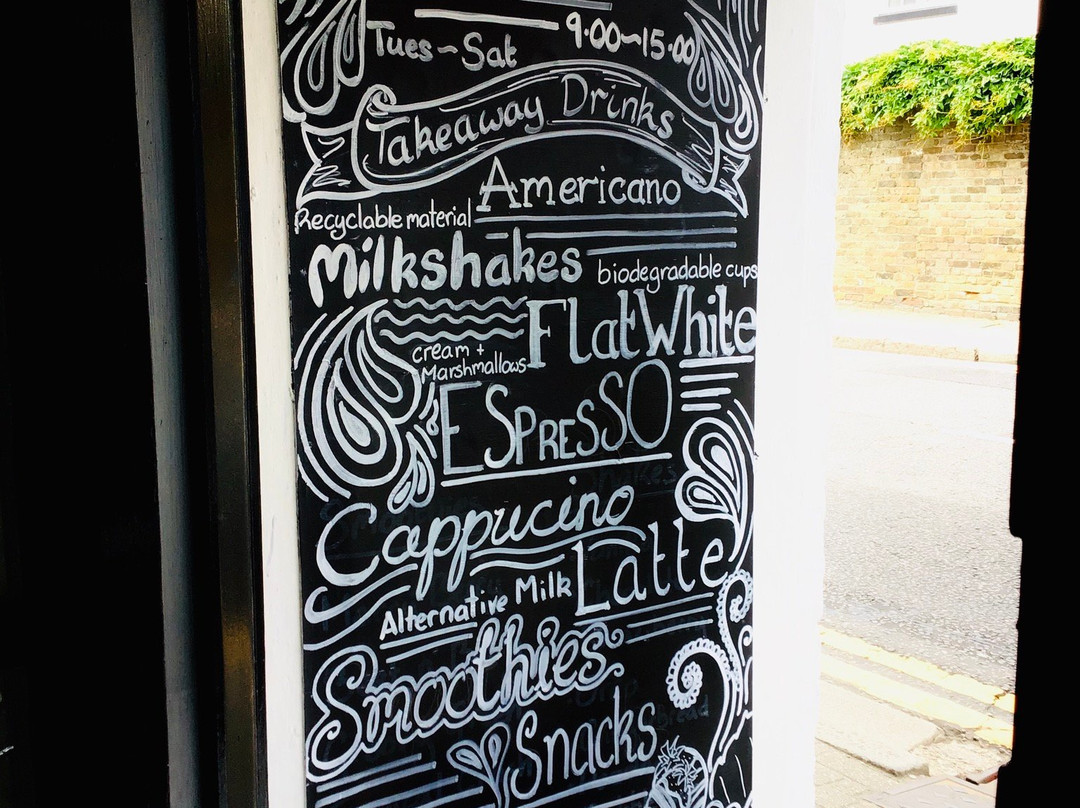 Tues~Sat 9.00~15.00
Takeaway Drinks
Americano
Recyclable material
Milkshakes
biodegradable cups
Flat White
cream +
Marshmallows
ESPRESSO
Cappucino
Latte
Alternative Milk
Smoothies
Snacks
Bread